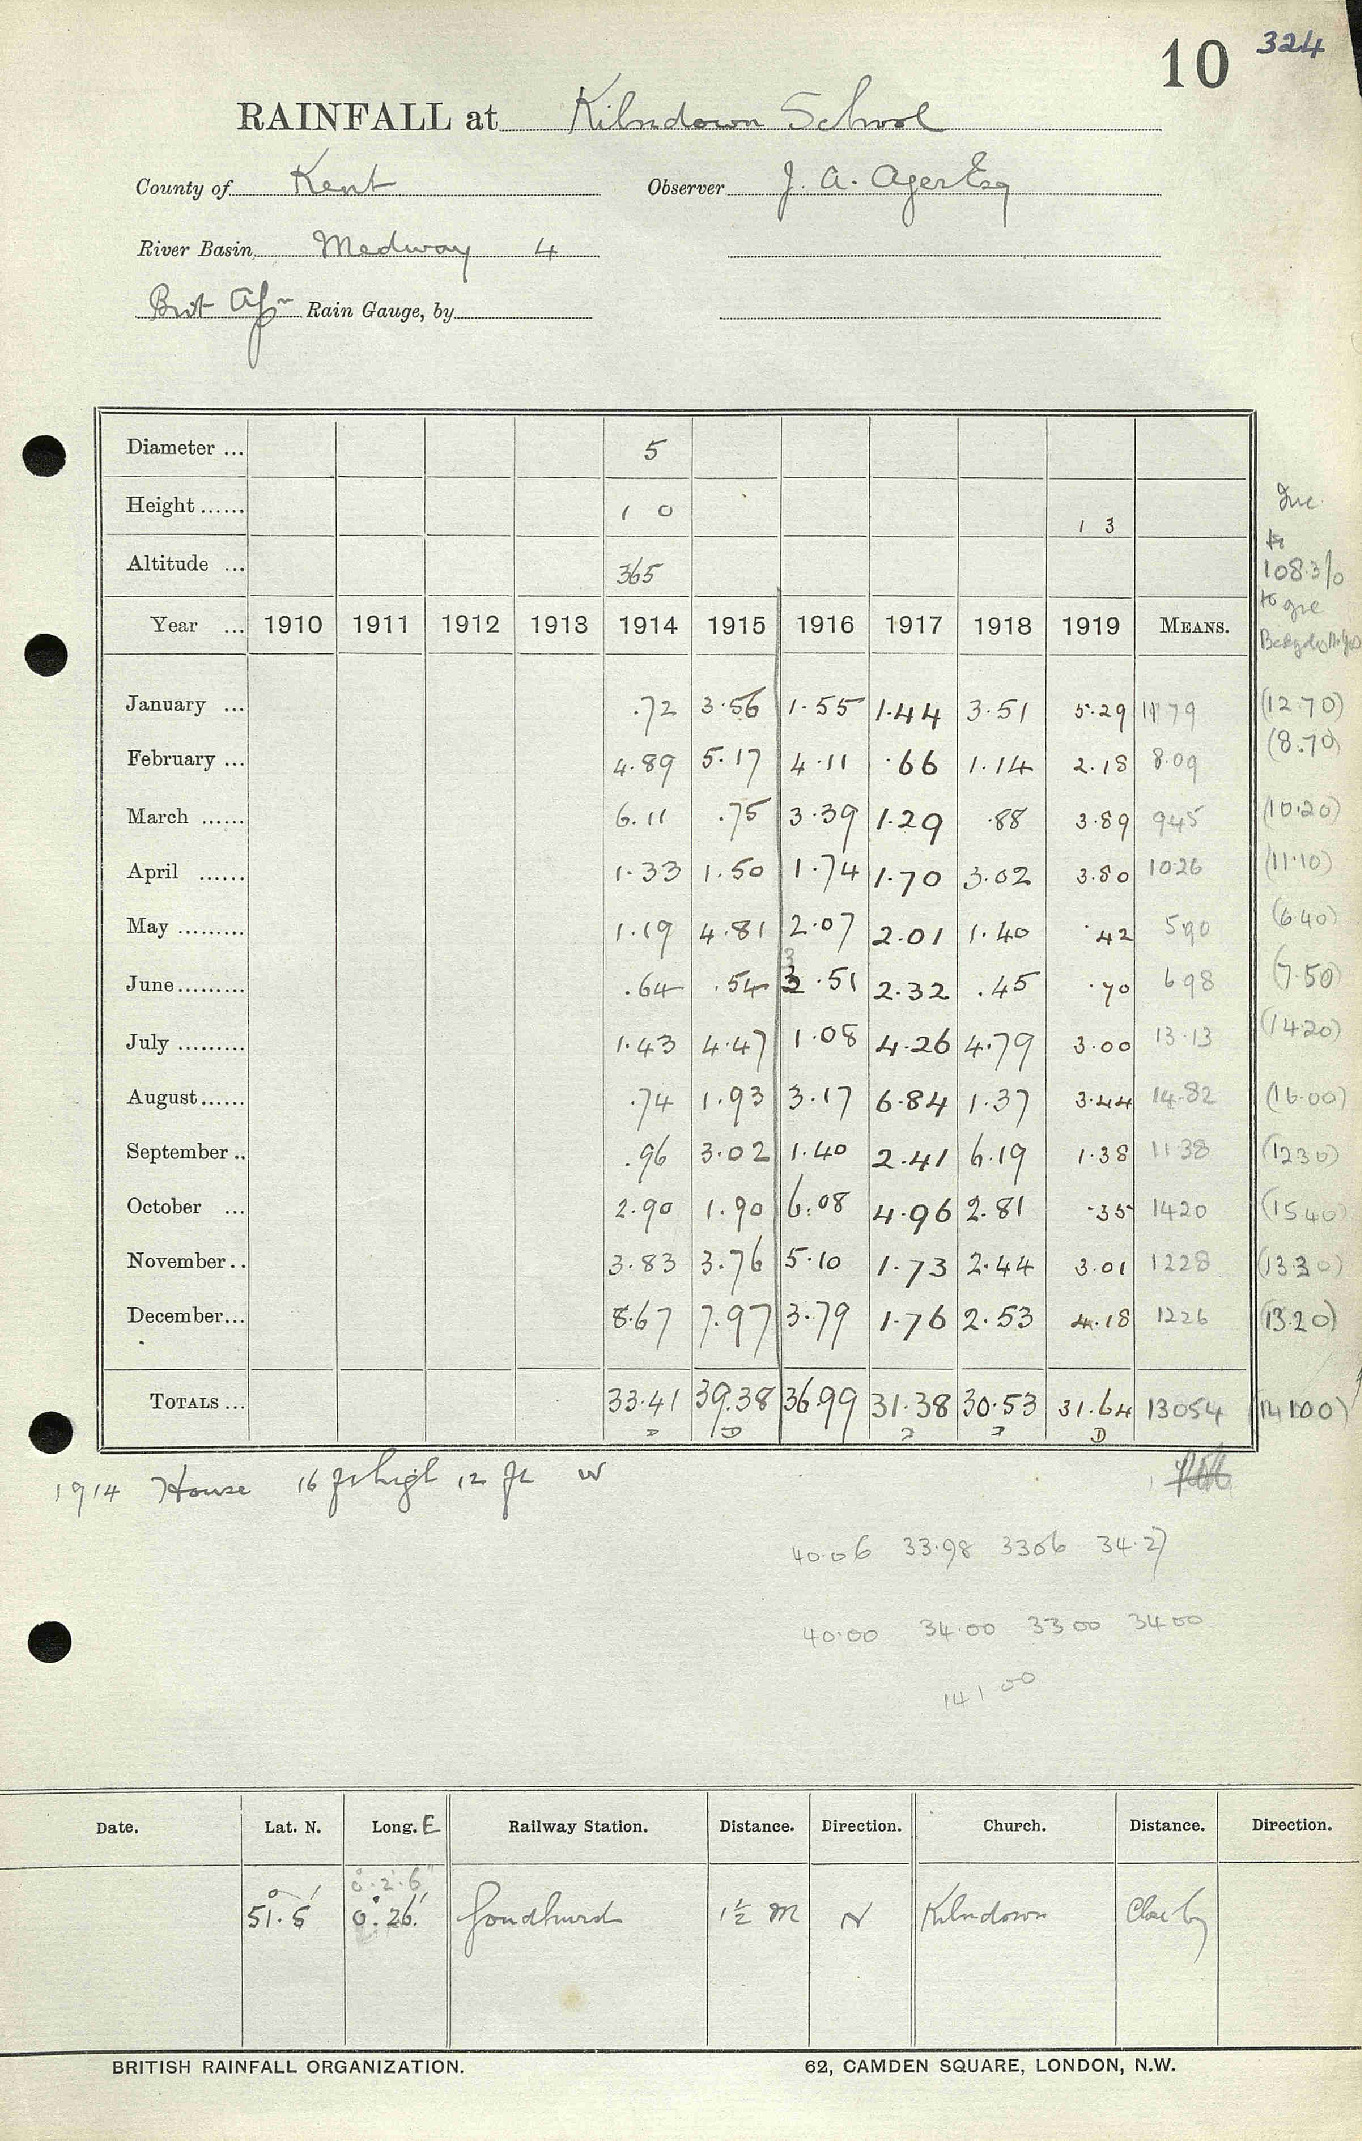 10 324
RAINFALL at Kilndown School
County of Kent Observer J. A. Ager Esq
River Basin, Medway 4
Brit Assn Rain Gauge, by
Diameter ... 5
Inc.
Height ...... 1 0 1 3
108.3%
Altitude ... 365
to give
Year ... 1910 1911 1912 1913 1914 1915 1916 1917 1918 1919 MEANS.
January ... .72 3.56 1.55 1.44 3.51 5.29 1179 (12.70)
February ... 4.89 5.17 4.11 .66 1.14 2.18 8.09 (8.70)
March ...... 6.11 .75 3.39 1.29 .88 3.89 945 (10.20)
April ...... 1.33 1.50 1.74 1.70 3.02 3.80 1026 (11.10)
May ......... 1.19 4.81 2.07 2.01 1.40 .42 590 (6.40)
3
June......... .64 .54 3.51 2.32 .45 .70 698 (7.50)
July ......... 1.43 4.47 1.08 4.26 4.79 3.00 13.13 (14.20)
August...... .74 1.93 3.17 6.84 1.37 3.44 14.82 (16.00)
September .. .96 3.02 1.40 2.41 6.19 1.38 1138 (1230)
October ... 2.90 1.90 6.08 4.96 2.81 .35 1420 (15.40)
November.. 3.83 3.76 5.10 1.73 2.44 3.01 1228 (13.30)
December... 8.67 7.97 3.79 1.76 2.53 4.18 1226 (13.20)
TOTALS ... 33.41 39.38 36.99 31.38 30.53 31.64 13054 (141.00)
D D
1914 House 16 ft high 12 ft W
40.06 33.98 3306 34.27
40.00 34.00 33 00 34 00
141 00
Date. Lat. N. Long. E Railway Station. Distance. Direction. Church. Distance. Direction.
0.2.6"
51°.5' 0°.26' Goudhurst 1½ M N Kilndown Close by
BRITISH RAINFALL ORGANIZATION. 62, CAMDEN SQUARE, LONDON, N.W.